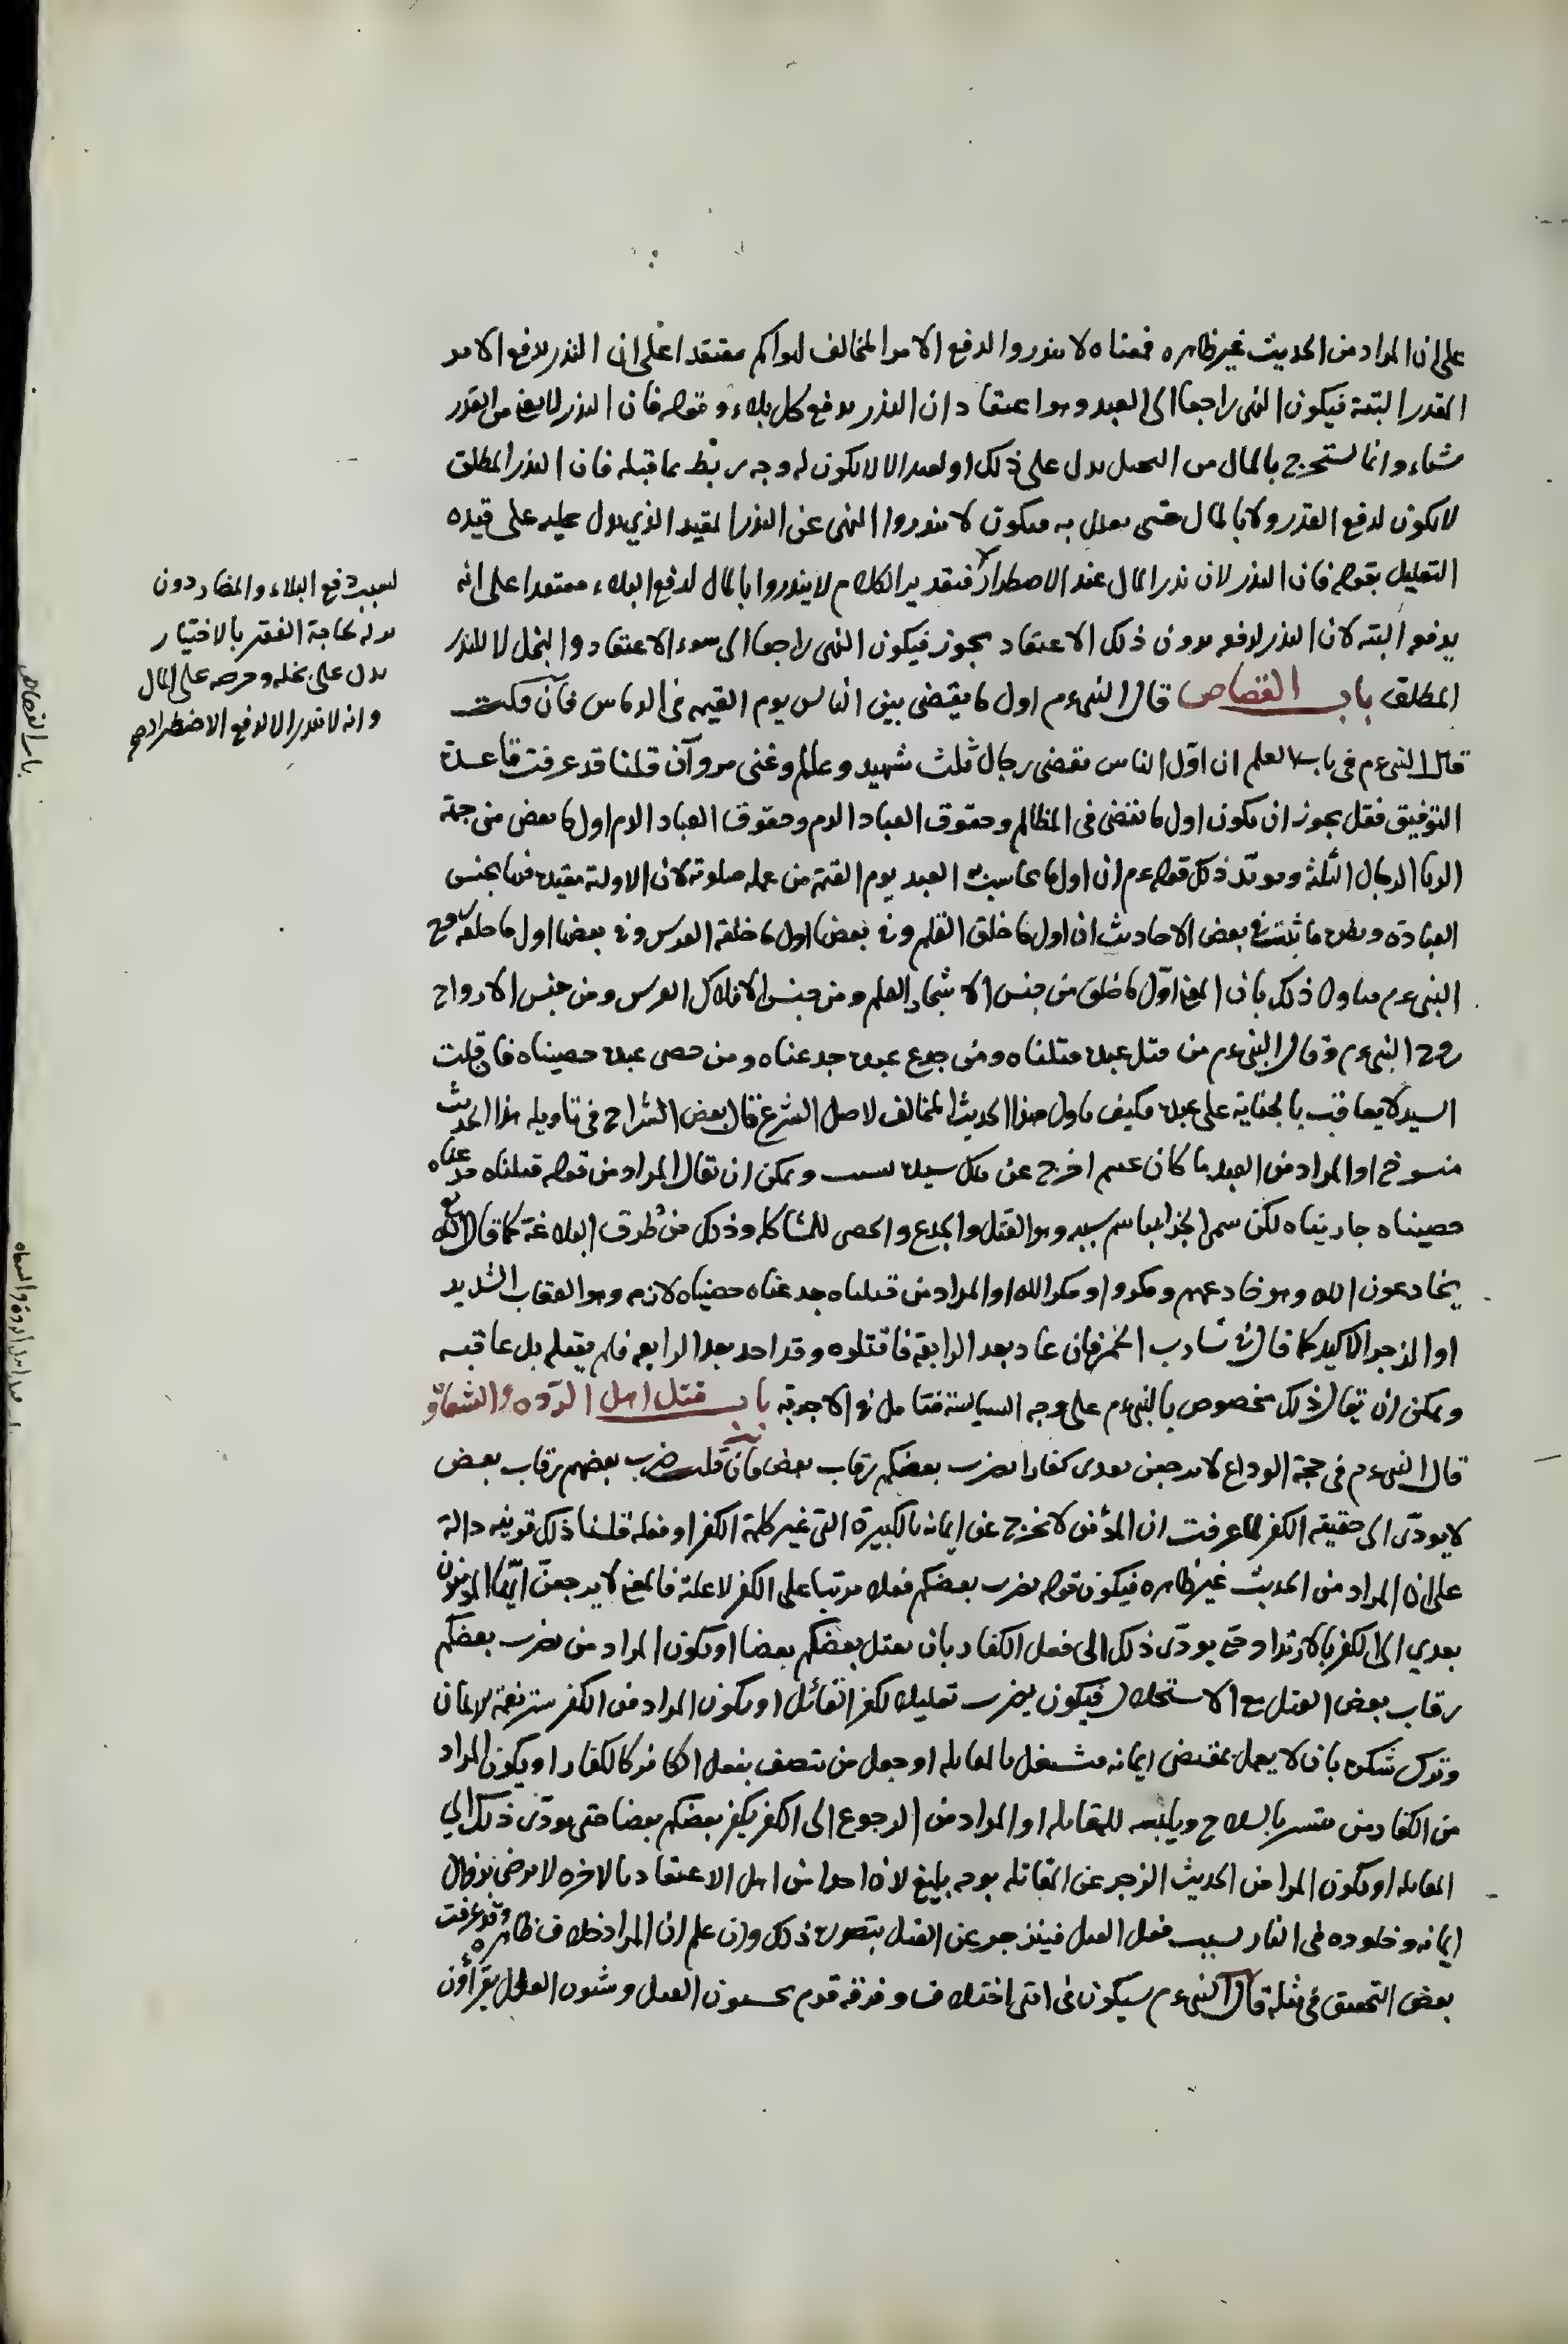 على ان المراد من الحديث غير ظاهره فمعناه لا تنذروا لدفع الامر المخالف لهواكم معتقدا على ان النذر يدفع الامر
المقدر البتة فيكون النهى راجعا الى العبد وهو اعتقاد ان النذر يدفع كل بلاء وقوله فان النذر لا يغنى من القدر
شياء وانما يستخرج بالمال من البخيل يدل على ذلك اولعبد الا لا يكون له وجه ربط بما قبله فان النذر المطلق
لا يكون لدفع القدر ولا بالمال حتى يعلل به فيكون لا تنذروا النهى عن النذر المقيد الذي يدل عليه على قيده
التعليل بقوله فان النذر لان نذر المال عند الاضطرار فتقدير الكلام لا ينذروا بالمال لدفع البلاء معتقدا على انه
يدفعه البته لان النذر لدفعه بدون ذلك الاعتقاد يجوز فيكون النهى راجعا الى سوء الاعتقاد والبخل لا للنذر
المطلق باب القصاص قال النبى عم اول ما يقضى بين الناس يوم القيمه فى الدماس فان قلت
قال النبى عم فى باب العلم ان اوّل الناس يقضى رجال ثلث شهيد وعالم وغنى مروآن قلنا قد عرفت قاعدة
التوفيق فقل يجوز ان يكون اول ما يقضى فى المظالم وحقوق العباد الدم وحقوق العباد الدم اول ما يعض من جهة
الريا الرجال الثلثة ويويّد ذلك قوله عم ان اول ما يحاسب به العبد يوم القيمة من عمله صلوته لان الاولية مقيدة فيها بجنس
العبادة ونظيره ما ثبت فى بعض الاحاديث ان اول ما خلق القلم وفى بعضها اول ما خلقه العرس وفى بعضها اول ما خلقه روح
النبى عم فياول ذلك بان المعنى اوّل ما خلق من جنس الاشجار القلم ومن جنس الافلاك العرس ومن جنس الارواح
روح النبى عم وقال النبى عم من قتل عبده قتلناه ومن جدع عبده جدعناه ومن خصى عبده خصيناه فان قلت
السيد لا يعاقب بالجناية على عبده فكيف ياول هذا الحديث المخالف لاصل الشرع قال بعض الشراح فى تاويله هذا الحديث
منسوخ او المراد من العبد ما كان عبده اخرج عن ملك سيده بسبب ويمكن ان يقال المراد من قوله قتلناه جدعناه
خصيناه جازيناه لكن سمى الجزا بها باسم سببه وهو القتل والجدع والخصى للمشاكله وذلك من طرق البلاغة كما قال الله تع
يخادعون الله وهو خادعهم ومكروا ومكر الله او المراد من قتلناه جدعناه خصيناه لازمه وهو العقاب الشديد
او الزجر الاكيد كما قال فى شارب الخمر فان عاد بعد الرابعة فاقتلوه وقد احد بعد الرابعه فلم يقتله بل عاقبه
ويمكن ان يقال ذلك مخصوص بالنبى عم على وجه السياسة فتامل فى الاجوبة باب قتل اهل الرّده والشعاة
قال النبى عم فى حجة الوداع لا ترجعن بعدى كفارا يضرب بعضكم رقاب بعض فان قلت ضرب بعضهم رقاب بعض
لا يودّى الى حقيقه الكفر لما عرفت ان المؤمن لا يخرج عن ايمانه بالكبيرة التى غير كلمة الكفر او فعله قلنا ذلك قرينه دالة
على ان المراد من الحديث غير ظاهره فيكون قوله يضرب بعضكم فعلا مرتبا على الكفر لا علة فالمعنى لا يرجعن ايّها المؤمنون
بعدي الى الكفر بالارتداد حتى يودّى ذلك الى فعل الكفار بان يقتل بعضكم بعضا او يكون المراد من يضرب بعضكم
رقاب بعض القتل مع الاستحلال فيكون يضرب تعليلا لكفر القائل او يكون المراد من الكفر ستر نعمة الايمان
وترك شكره بان لا يعمل بمقتضى ايمانه فتشتغل بالمقابله او جعل من تتصف بفعل الكافر كالكفار او يكون المراد
من الكفار من تتستر بالسلاح ويلبسه للمقاتله او المراد من الرجوع الى الكفر يكفر بعضكم بعضا حتى يودّى ذلك الي
المقاتله او يكون المراد من الحديث الزجر عن المقاتله بوجه بليغ لان احدا من اهل الاعتقاد بالاخره لا يرضى بزوال
ايمانه وخلوده فى النار بسبب فعل القتل فينزجر عن القتل بتصور ذلك وان علم ان المراد خلاف ظاهره وقد عرفت
بعض التحقيق فى مثله قال النبى عم سيكون فى امتى اختلاف وفرقه قوم يحسنون القيل ويسئون الفعل يقرأون
لسبب دفع البلاء والمضار دون
بدله لحاجة الفقر بالاختيار
يدل على بخله وحرصه على المال
وانه لا ينذر الا لدفع الاضطرار صح
باب القصاص
باب قتل اهل الردة والسعاه